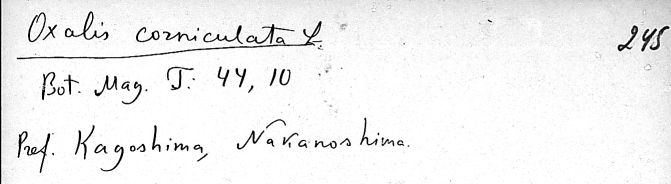 Oxalis corniculata L. 245
Bot. Mag. T: 44, 10
Pref. Kagoshima, Nakanoshima.